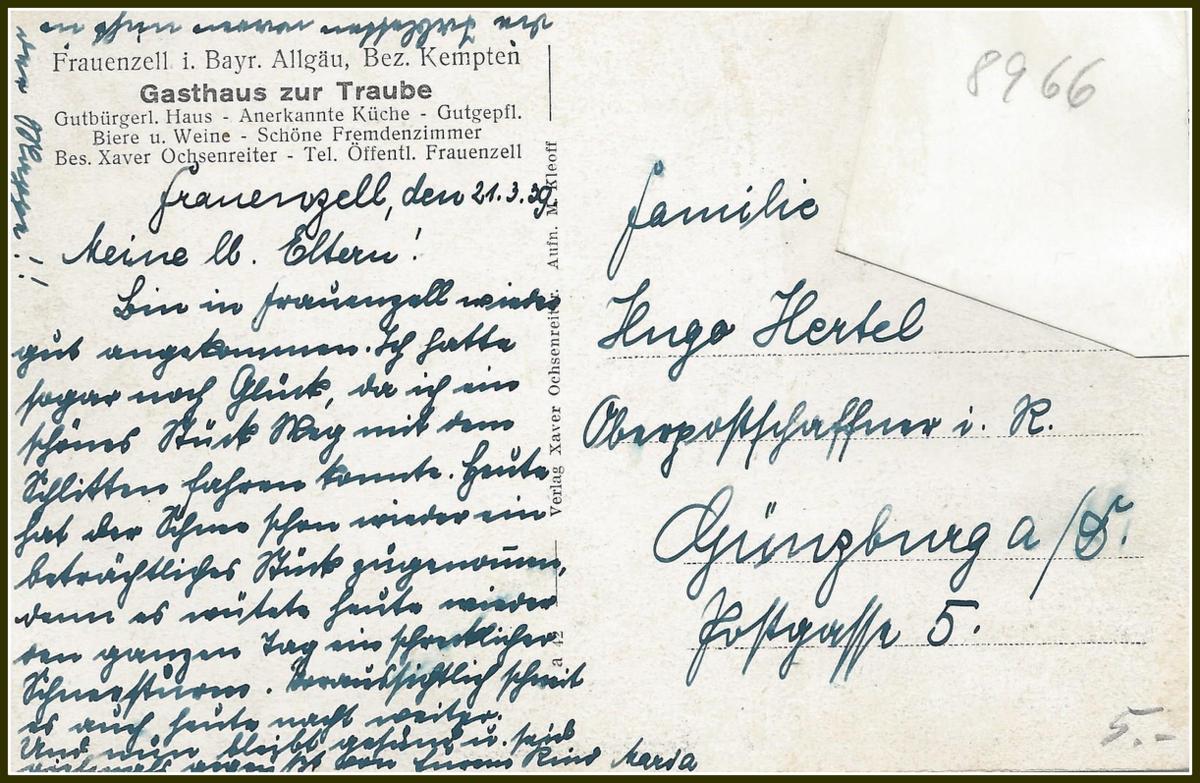 Frauenzell i. Bayr. Allgäu, Bez. Kempten
Gasthaus zur Traube
Gutbürgerl. Haus - Anerkannte Küche - Gutgepfl.
Biere u. Weine - Schöne Fremdenzimmer
Bes. Xaver Ochsenreiter - Tel. Öffentl. Frauenzell
Frauenzell, den 21.3.39
Meine lb. Eltern!
Bin in Frauenzell wieder
gut angekommen. Ich hatte
sogar noch Glück, da ich ein
schönes Stück Weg mit dem
Schlitten fahren konnte. Heute
hat der Schnee schon wieder ein
beträchtliches Stück zugenommen,
denn es wütete heute wieder
den ganzen Tag ein schrecklicher
Schneesturm. Voraussichtlich schneit
es auch heute nacht weiter.
Und nun bleibt gesund u. seid
vielmals gegrüßt von Eurem Kind Maria
Verlag Xaver Ochsenreiter. Aufn. M. Kleoff
a 42
8966
Familie
Hugo Hertel
Oberpostschaffner i. R.
Günzburg a/D.
Postgasse 5.
5.-